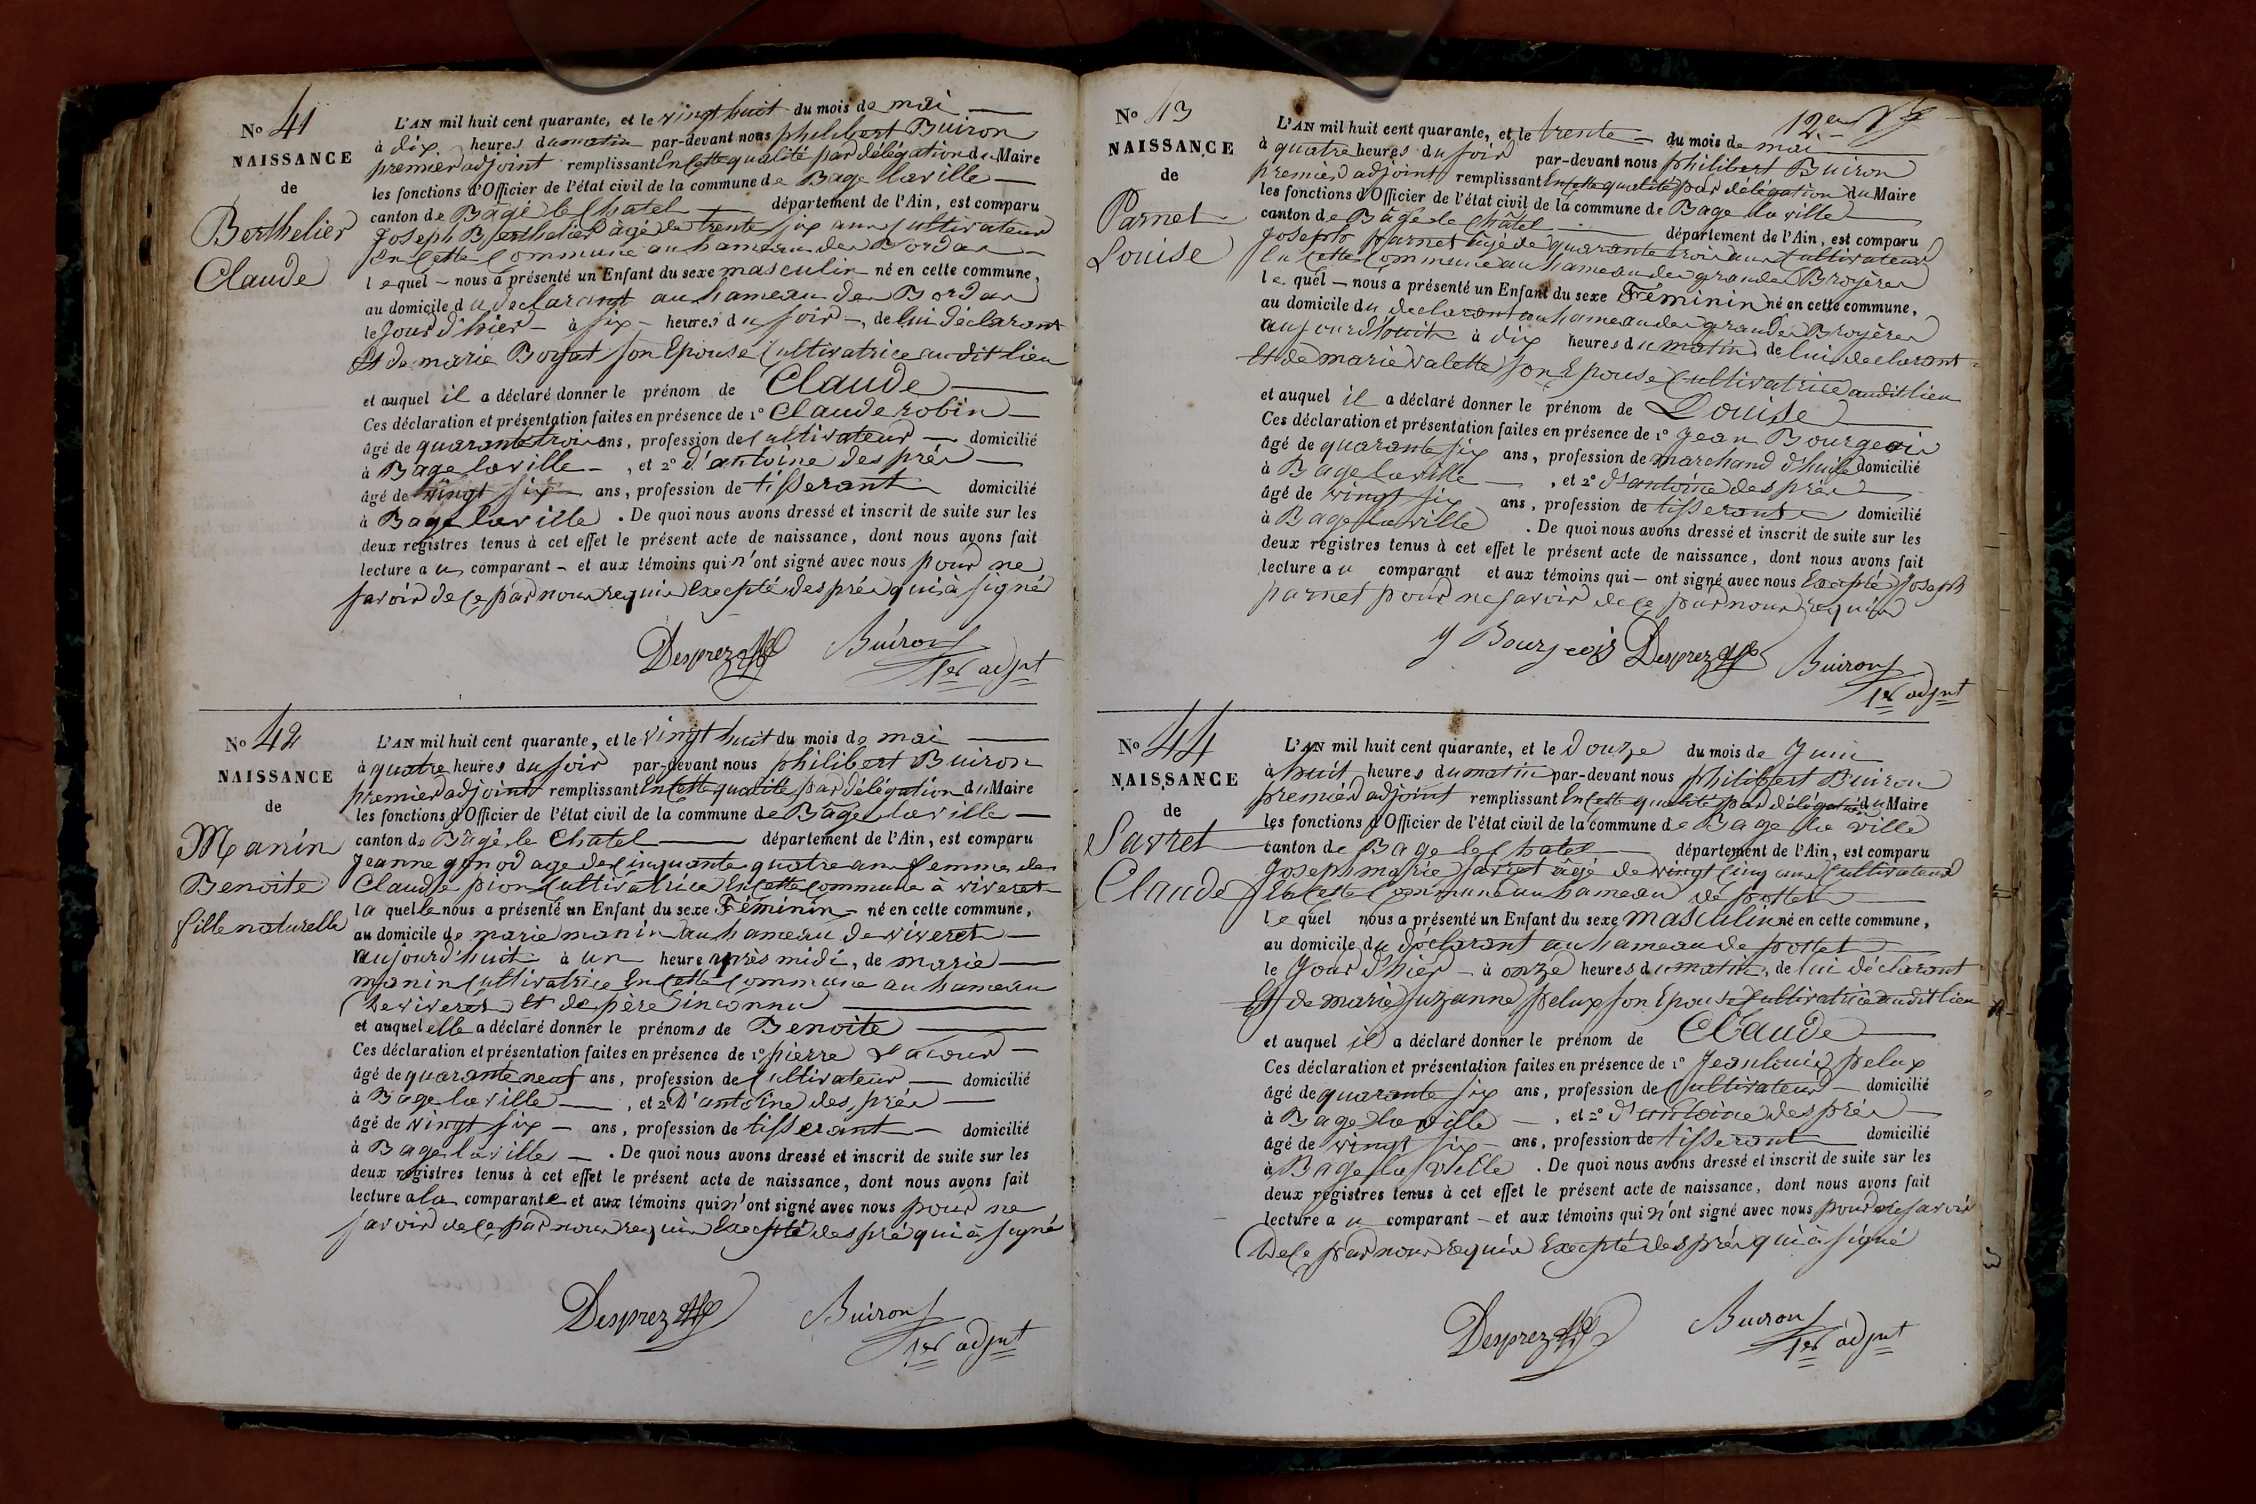 No 41
NAISSANCE
de
Berthelier
Claude
L'AN mil huit cent quarante, et le vingt huit du mois de mai
à dix heures du matin par-devant nous philibert Buiron
premier adjoint remplissant En cette qualité par délégation du Maire
les fonctions d'Officier de l'état civil de la commune de Bage la ville
canton de Bâgé le Chatel département de l'Ain, est comparu
Joseph Berthelier âgé de trente six ans Cultivateur
En Cette Commune au hameau des Bordes
lequel – nous a présenté un Enfant du sexe masculin né en cette commune,
au domicile du declarant au hameau des Bordes
le Jour d'hier – à six – heures du soir –, de lui déclarant
Et de marie Boyat son Epouse Cultivatrice au dit lieu
et auquel il a déclaré donner le prénom de Claude
Ces déclaration et présentation faites en présence de 1º Claude robin
âgé de quarante trois ans, profession de Cultivateur domicilié
à Bage la ville –, et 2º d'antoine des prés
âgé de vingt six ans, profession de tisserant domicilié
à Bage la ville . De quoi nous avons dressé et inscrit de suite sur les
deux registres tenus à cet effet le présent acte de naissance, dont nous avons fait
lecture au comparant – et aux témoins qui n'ont signé avec nous pour ne
savoir de ce par nous requis Excepté des prés qui à signé
Desprez Buiron
1er adjnt
No 42
NAISSANCE
de
Manin
Benoite
fille naturelle
L'AN mil huit cent quarante, et le vingt huit du mois de mai
à quatre heures du soir par-devant nous philibert Buiron
premier adjoint remplissant En cette qualité par délégation du Maire
les fonctions d'Officier de l'état civil de la commune de Bâgé la ville
canton de Bâgé le Chatel département de l'Ain, est comparu
Jeanne gonod age de Cinquante quatre ans femme de
Claude pion Cultivatrice En cette Commune à viveret
la quelle nous a présenté un Enfant du sexe Féminin – né en cette commune,
au domicile de marie manin au hameau de viveret
aujourd'huit à un heure après midi, de marie
manin Cultivatrice En cette Commune au hameau
De viveret Et de père inconnu
et auquel elle a déclaré donner le prénoms de Benoite
Ces déclaration et présentation faites en présence de 1º pierre Lacour
âgé de quarante neuf ans, profession de Cultivateur domicilié
à Bage la ville , et 2º D'antoine des prés
âgé de vingt six – ans, profession de tisserant – domicilié
à Bage la ville – . De quoi nous avons dressé et inscrit de suite sur les
deux registres tenus à cet effet le présent acte de naissance, dont nous avons fait
lecture a la comparante et aux témoins qui n'ont signé avec nous pour ne
savoir de ce par nous requis Excepté des pré qui à signé
Desprez Buiron
1er adjnt
No 43
NAISSANCE
de
Parnet
Louise
L'AN mil huit cent quarante, et le trente du mois de mai
à quatre heures du soir par-devant nous philibert Buiron
premier adjoint remplissant En cette qualité par délégation du Maire
les fonctions d'Officier de l'état civil de la commune de Bage la ville
canton de Bâgé le Châtel département de l'Ain, est comparu
Joseph parnet âgé de quarante trois ans Cultivateur
En Cette Commune au hameau des grandes Broyères
le quel – nous a présenté un Enfant du sexe Féminin né en cette commune,
au domicile du declarant au hameau des grandes Broyères
aujourd'huit à dix heures du matin de lui declarant
Et de marie valette son Epouse Cultivatrice au dit lieu
et auquel il a déclaré donner le prénom de Louise
Ces déclaration et présentation faites en présence de 1º Jean Bourgeois
âgé de quarante six ans, profession de marchand d'huile domicilié
à Bage la ville , et 2º d'antoine des prés
âgé de vingt six ans, profession de tisserant domicilié
à Bage la ville . De quoi nous avons dressé et inscrit de suite sur les
deux registres tenus à cet effet le présent acte de naissance, dont nous avons fait
lecture au comparant et aux témoins qui – ont signé avec nous Excepté Joseph
parnet pour ne savoir de ce par nous requis
J Bourgeois Desprez Buiron
1er adjnt
No 44
NAISSANCE
de
Savret
Claude
L'AN mil huit cent quarante, et le douze du mois de Juin
à huit heures du matin par-devant nous philibert Buiron
premier adjoint remplissant En cette qualité par délégation du Maire
les fonctions d'Officier de l'état civil de la commune de Bage la ville
canton de Bage le Chatel département de l'Ain, est comparu
Joseph marie savret âgé de vingt Cinq ans Cultivateur
En Cette Commune au hameau de pottet
le quel nous a présenté un Enfant du sexe masculin né en cette commune,
au domicile du déclarant au hameau de pottet
le Jour d'hier – à onze heures du matin, de lui déclarant
Et de marie suzanne pelux son Epouse Cultivatrice au dit lieu
et auquel il a déclaré donner le prénom de Claude
Ces déclaration et présentation faites en présence de 1º Jean louis pelux
âgé de quarante six ans, profession de Cultivateur domicilié
à Bage la ville –, et 2º d'antoine des prés
âgé de vingt six – ans, profession de tisserant domicilié
à Bage la ville . De quoi nous avons dressé et inscrit de suite sur les
deux registres tenus à cet effet le présent acte de naissance, dont nous avons fait
lecture au comparant – et aux témoins qui n'ont signé avec nous pour ne savoir
De ce par nous requis Excepté des prés qui à signé
Desprez Buiron
1er adjnt